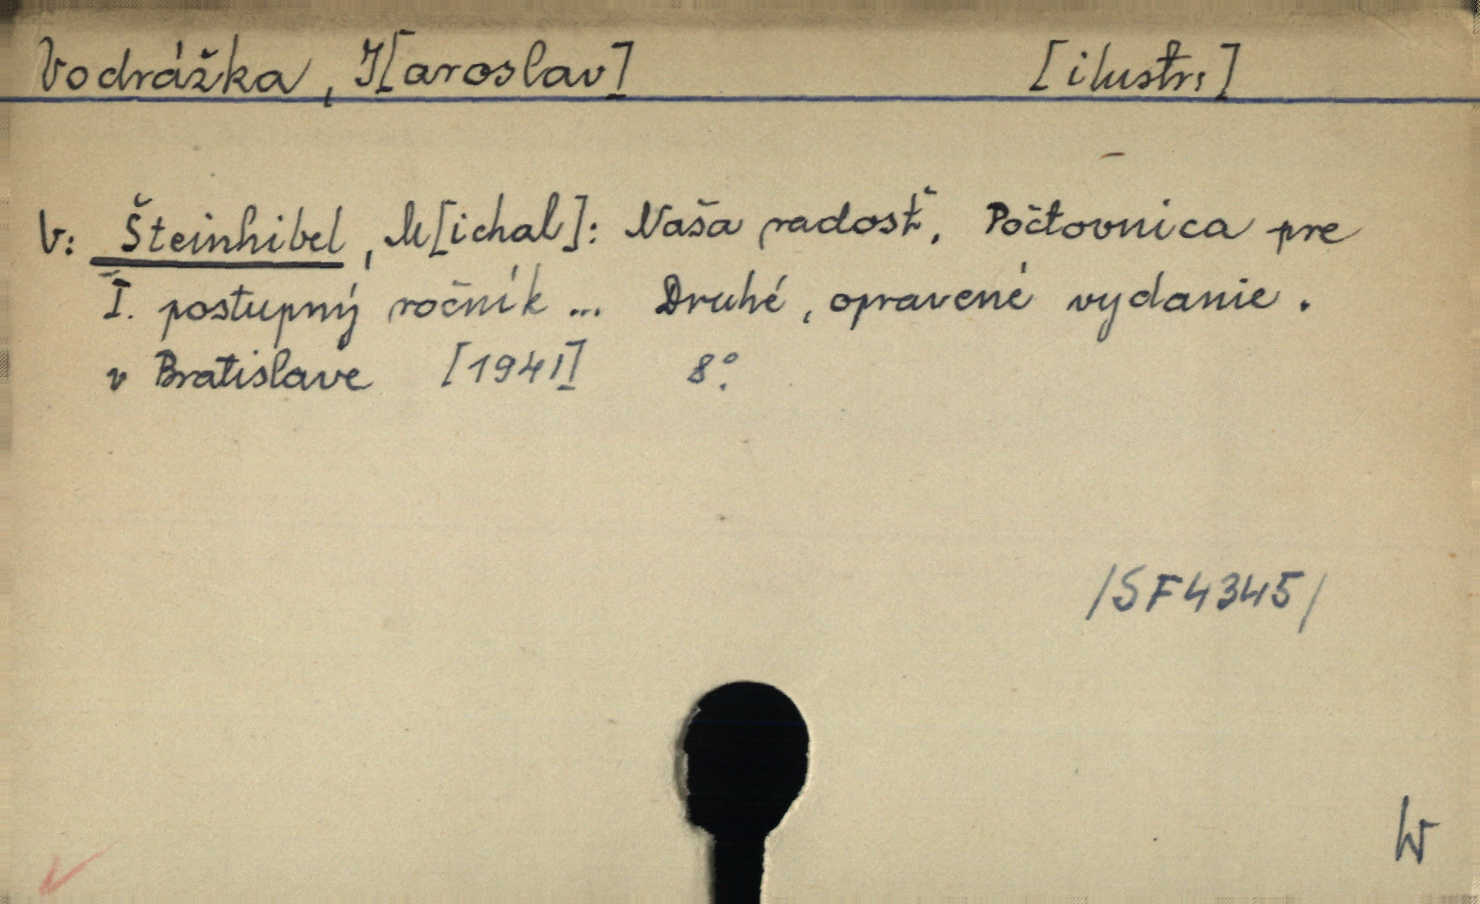 Vodrážka, J[aroslav] [ilustr.]
V: Šteinhibel, M[ichal]: Naša radosť. Počtovnica pre
I. postupný ročník ... Druhé, opravené vydanie.
v Bratislave [1941] 8°.
/SF4345/
W